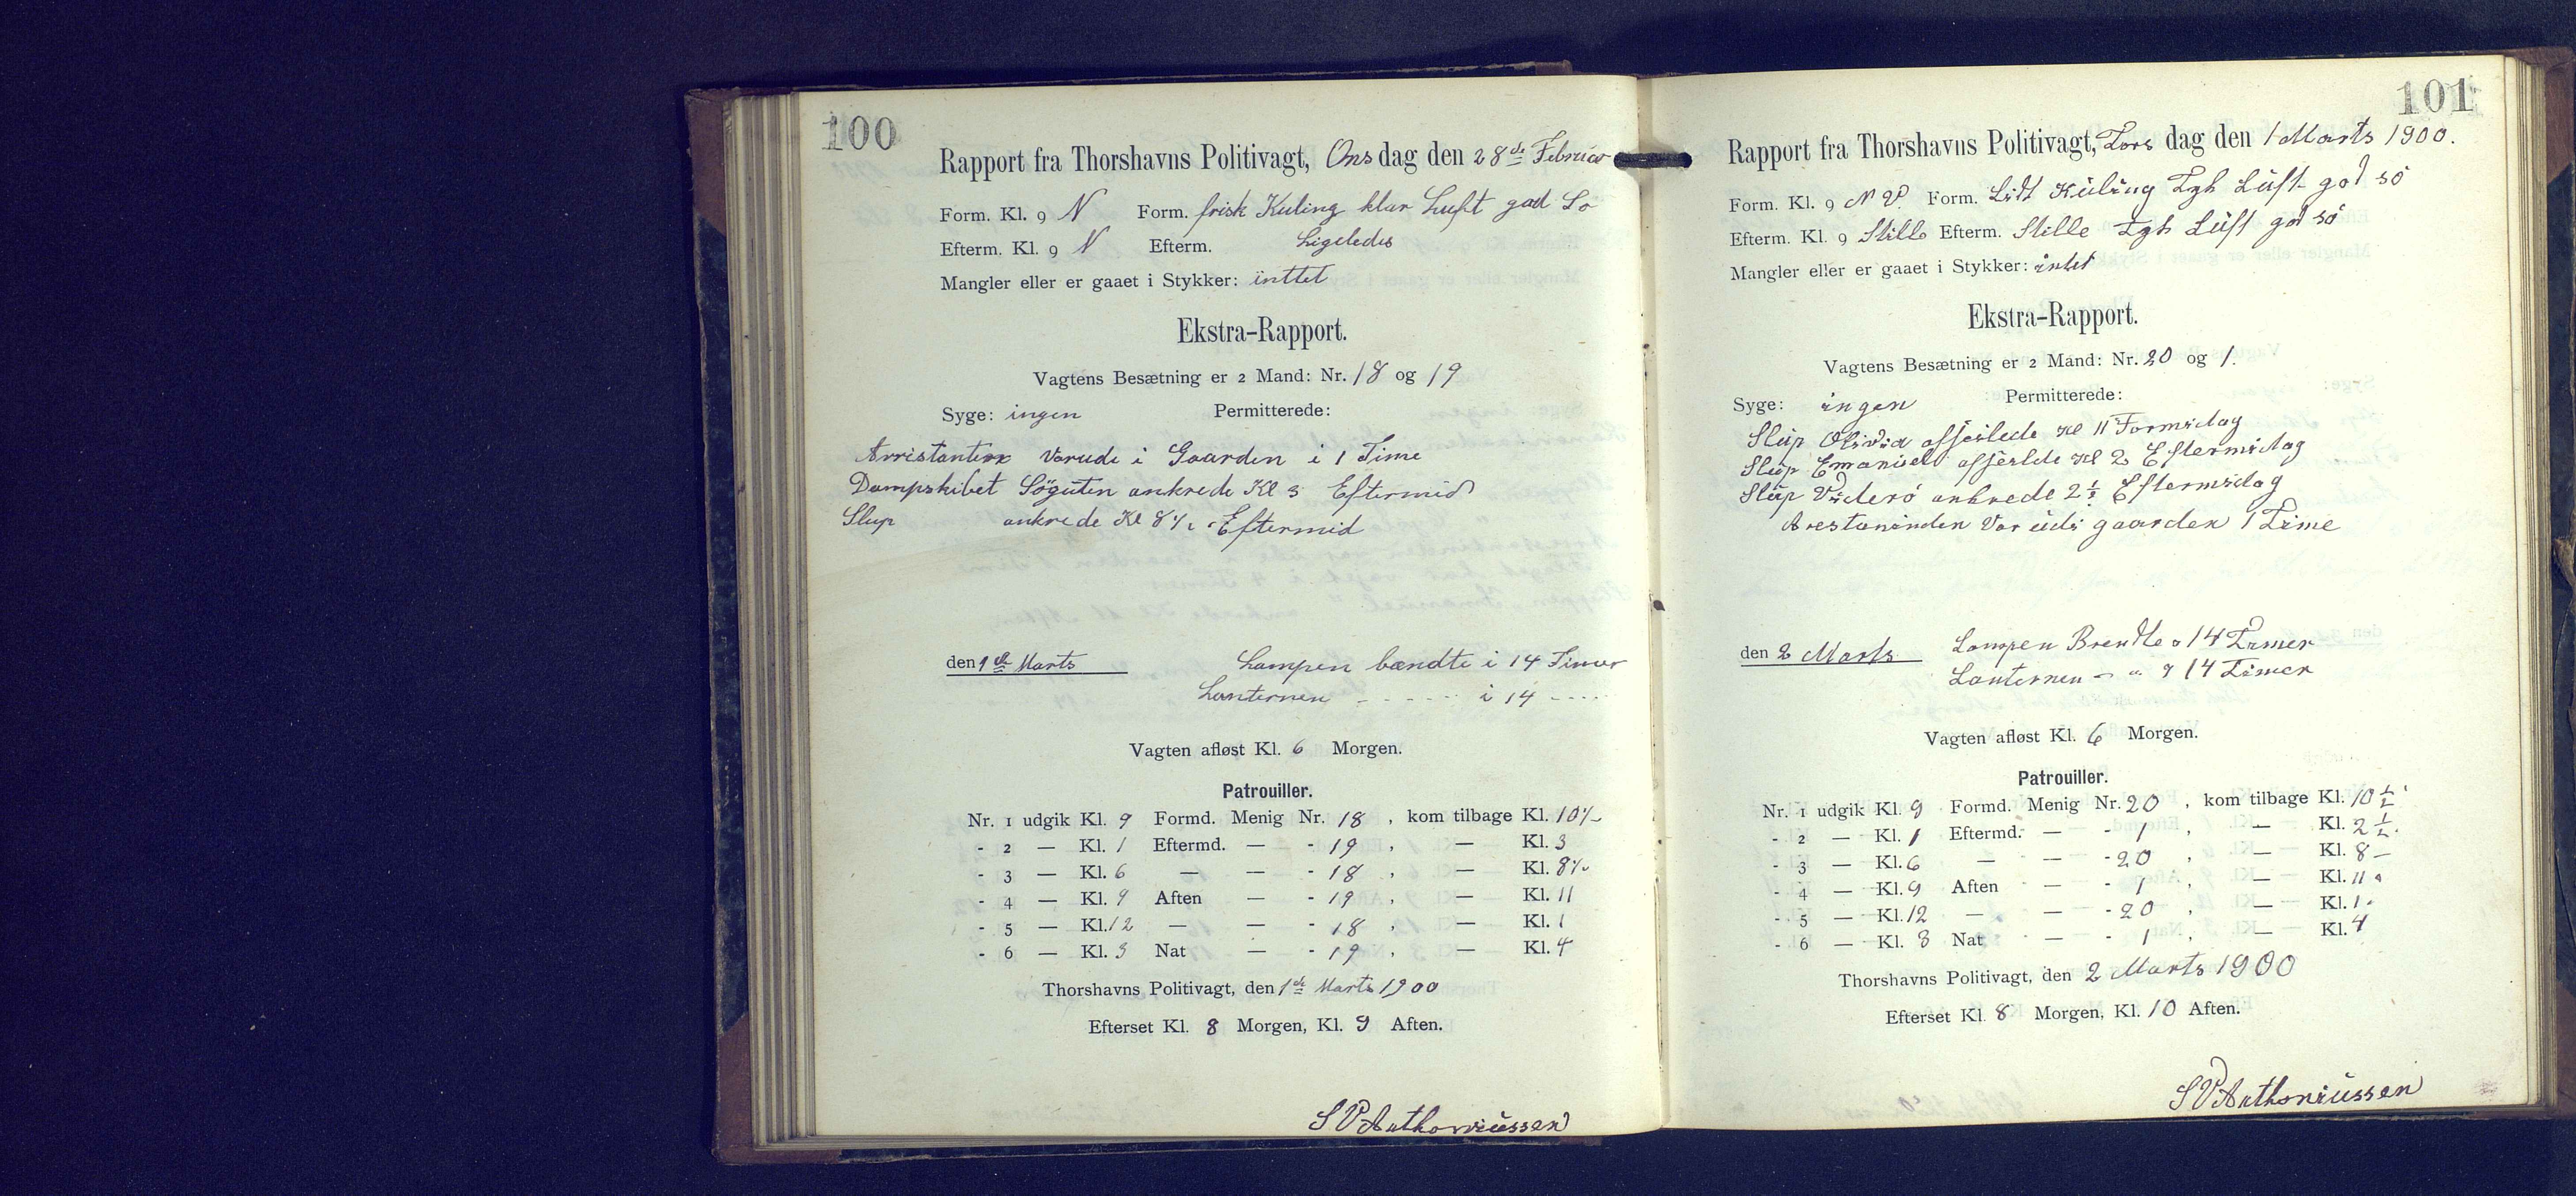 100
Rapport fra Thorshavns Politivagt, Ons dag den 28de Februar
Form. Kl. 9 N Form. frisk Kuling klar Luft god So
Efterm. Kl. 9 N Efterm. Ligeledes
Mangler eller er gaaet i Stykker: inttet
Ekstra-Rapport.
Vagtens Besætning er 2 Mand: Nr. 18 og 19
Syge: ingen Permitterede:
Arristanten Varude i Gaarden i 1 Time
Dampskibet Söguten ankrede Kl 3 Eftermid
Slup ankrede Kl 8½ Eftermid
den 1de Marts Lampen bændte i 14 Timer
Lanternen - - - - - - i 14 - - - -
Vagten afløst Kl. 6 Morgen.
Patrouiller.
Nr. 1 udgik Kl. 9 Formd. Menig Nr. 18 , kom tilbage Kl. 10½
- 2 — Kl. 1 Eftermd. — - 19 , — Kl. 3
- 3 — Kl. 6 — — - 18 , — Kl. 8½
- 4 — Kl. 9 Aften — - 19 , — Kl. 11
- 5 — Kl. 12 — — - 18 , — Kl. 1
- 6 — Kl. 3 Nat — - 19 , — Kl. 4
Thorshavns Politivagt, den 1de Marts 1900
Efterset Kl. 8 Morgen, Kl. 9 Aften.
S V Anthoniussen
101
Rapport fra Thorshavns Politivagt, Tors dag den 1 Marts 1900.
Form. Kl. 9 N V. Form. Lidt Küling Tyk Lüft god sö
Efterm. Kl. 9 Stille Efterm. Stille Tyk Lüft god sö
Mangler eller er gaaet i Stykker: intet
Ekstra-Rapport.
Vagtens Besætning er 2 Mand: Nr. 20 og 1.
Syge: ingen Permitterede:
Slüp Olivia afsejlede Kl 11 Formidag
Slüp Emanuel afsejlde Kl 2 Eftermidag
Slüp Viderö ankrede 2½ Eftermidag
Arestaninden Var üdi gaarden 1 Time
den 2 Marts Lampen Brendte i 14 Timer
Lanternen - " i 14 Timer
Vagten afløst Kl. 6 Morgen.
Patrouiller.
Nr. 1 udgik Kl. 9 Formd. Menig Nr. 20 , kom tilbage Kl. 10½
- 2 — Kl. 1 Eftermd. — - 1 , — Kl. 2½.
- 3 — Kl. 6 — — - 20 , — Kl. 8 –
- 4 — Kl. 9 Aften — - 1 , — Kl. 11
- 5 — Kl. 12 — — - 20 , — Kl. 1
- 6 — Kl. 3 Nat — - 1 , — Kl. 4
Thorshavns Politivagt, den 2 Marts 1900
Efterset Kl. 8 Morgen, Kl. 10 Aften.
S V Anthoniüssen